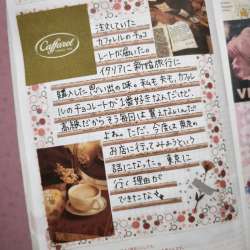 Caffarel
注文していた
カファレルのチョコ
レートが届いた。
イタリアに新婚旅行に
購入した思い出の味。私も夫も、カファレ
ルのチョコレートが1番好きなんだけど、
高級だからそう毎日は買えないもんだ
よね。ただ、今度は東京の
お店に行ってみようという
話になった。東京に
行く理由が
できたなぁ